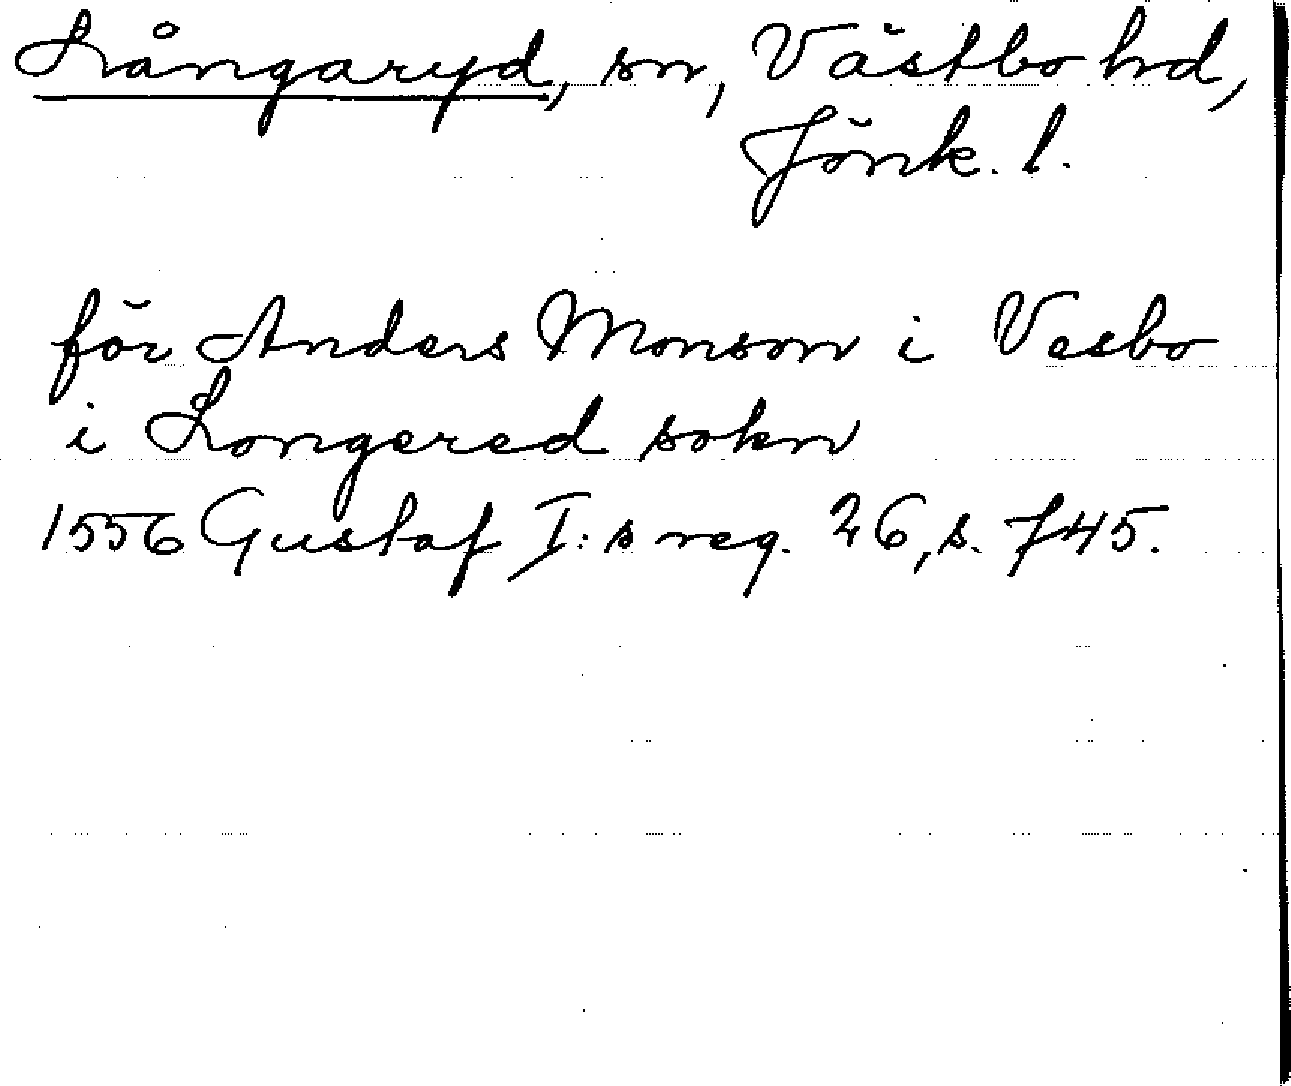 Långaryd, sn, Västbo hd,
Jönk. l.
för Anders Monson i Vesbo
i Longered sokn
1556 Gustaf I:s reg. 26, s. 745.